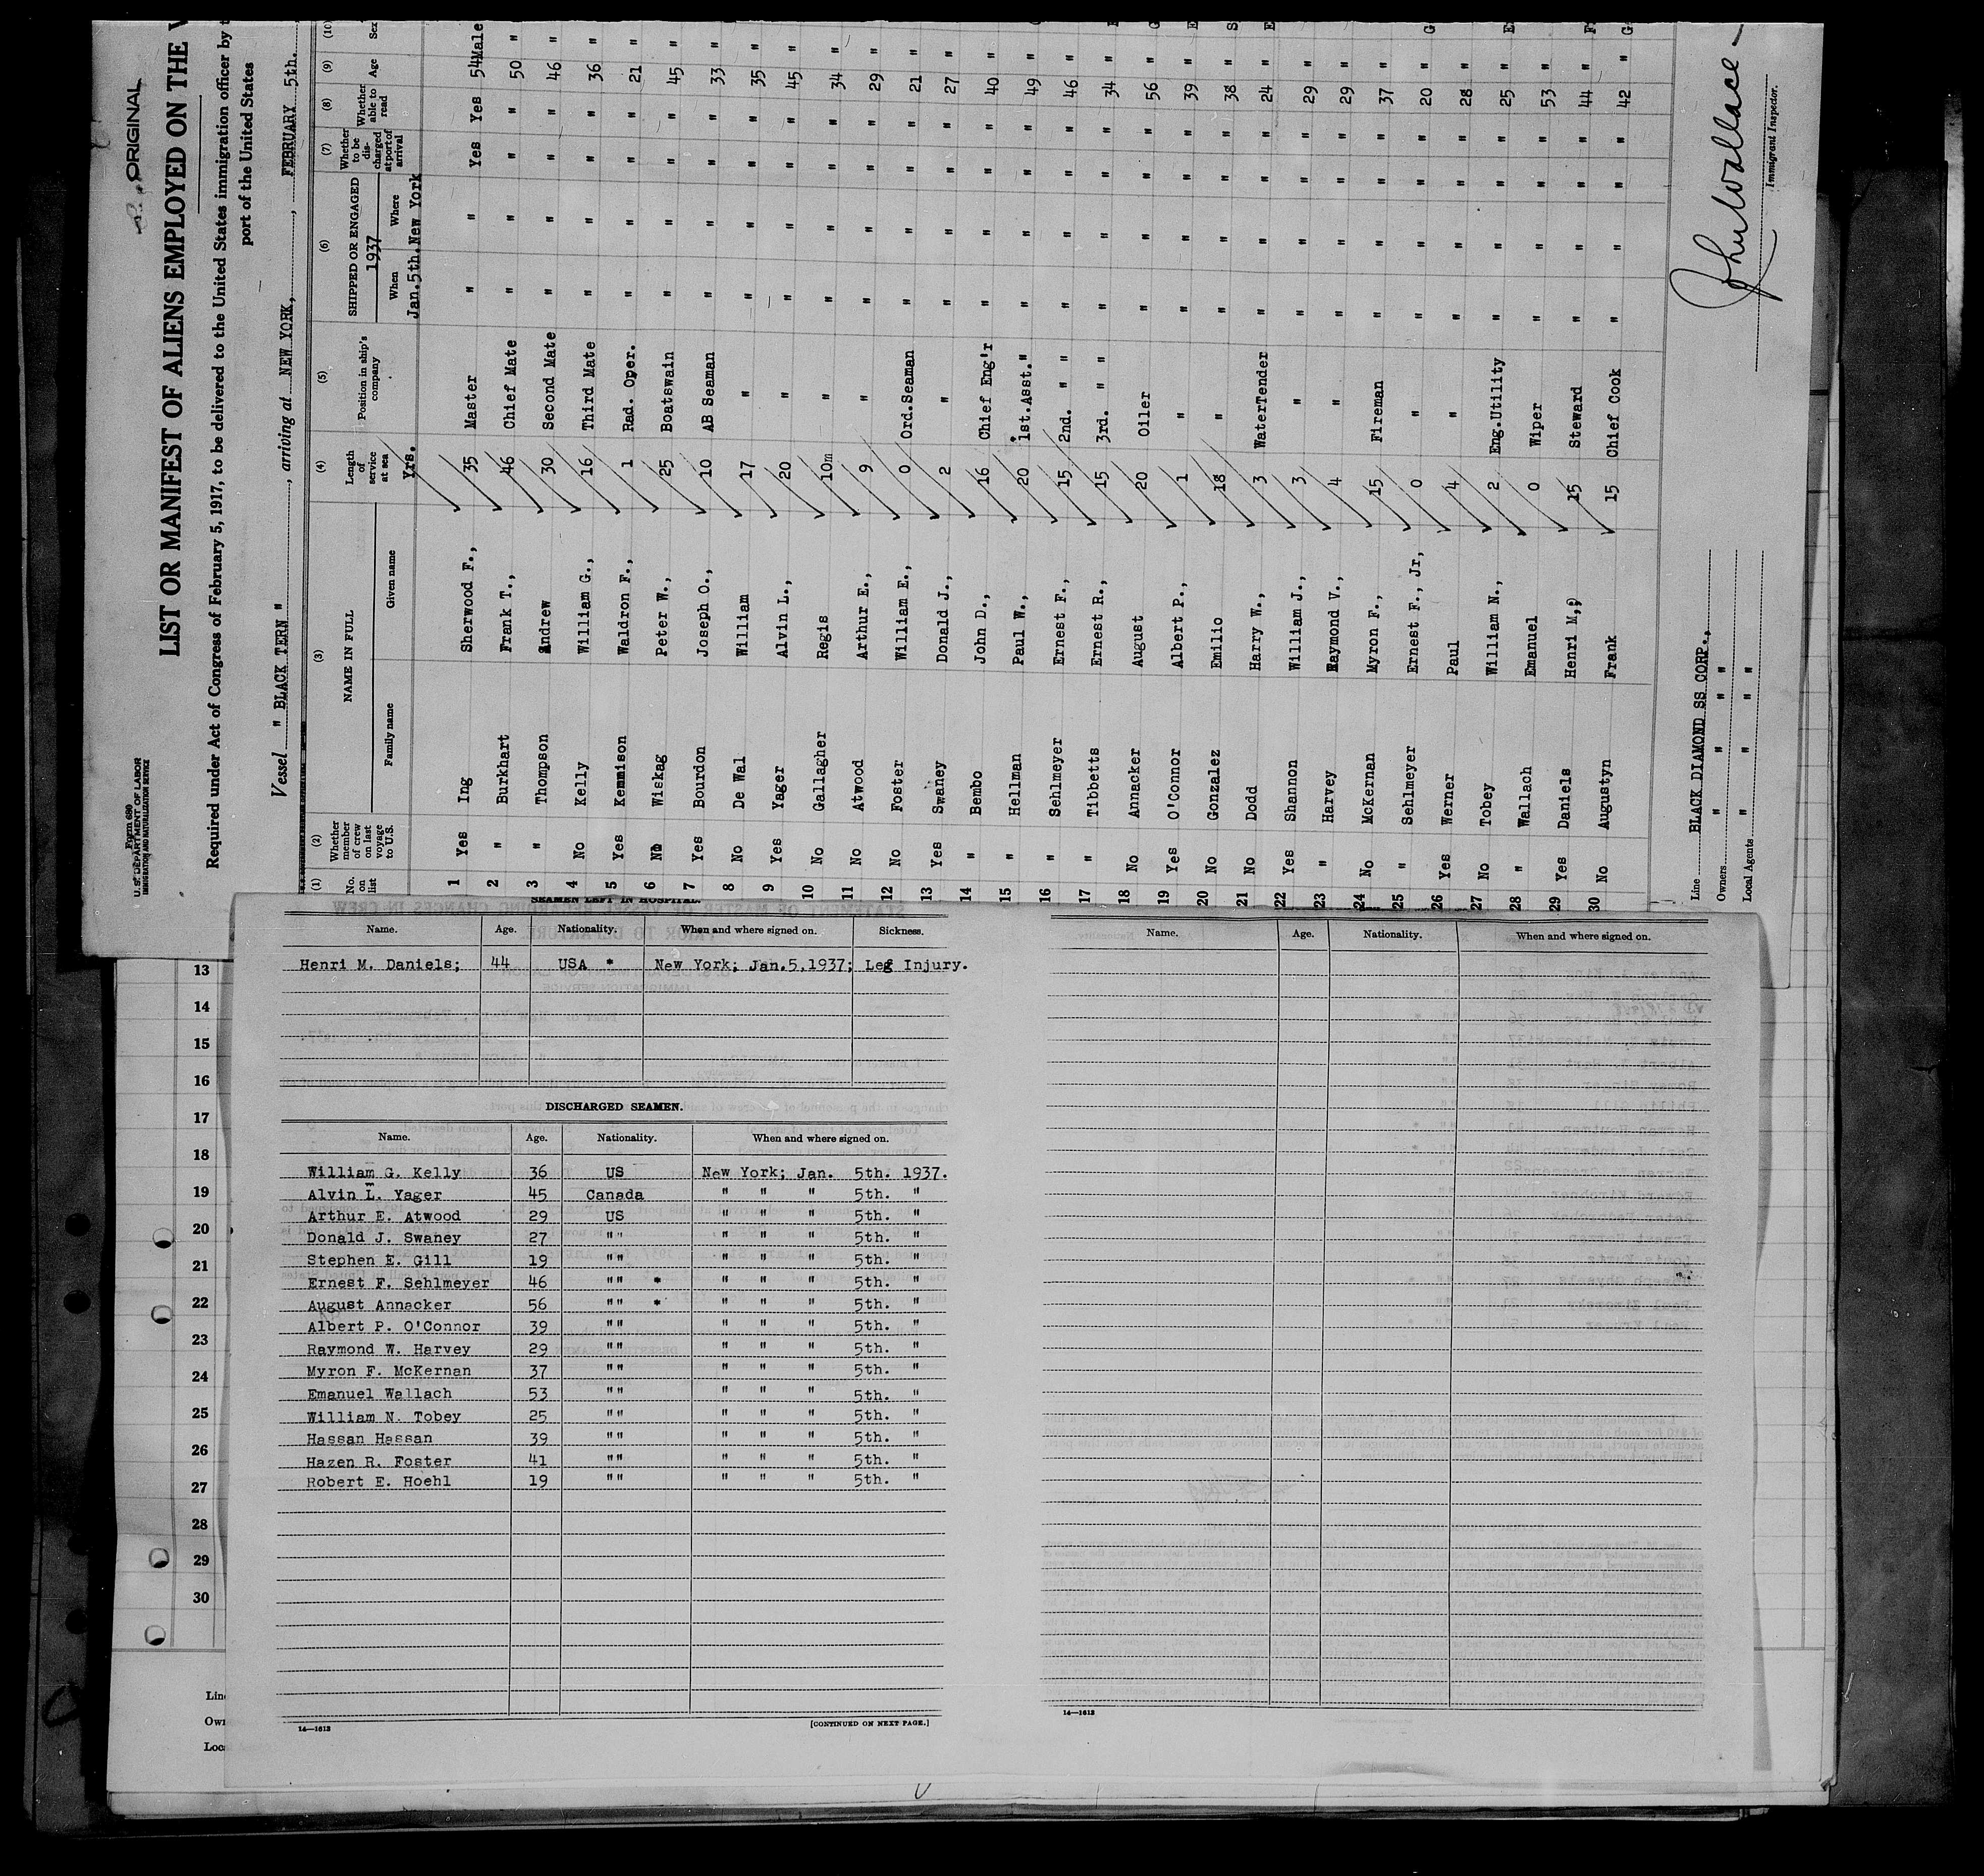 ORIGINAL
Form 680
U. S. DEPARTMENT OF LABOR
IMMIGRATION AND NATURALIZATION SERVICE
LIST OR MANIFEST OF ALIENS EMPLOYED ON THE
Required under Act of Congress of February 5, 1917, to be delivered to the United States immigration officer by
port of the United States
Vessel " BLACK TERN " , arriving at NEW YORK, , FEBRUARY 5th.
(1) (2) (3) (4) (5) (6) (7) (8) (9) (10)
No. on list Whether member of crew on last voyage to U.S. NAME IN FULL Family name Given name Length of service at sea Position in ship's company SHIPPED OR ENGAGED 1937 When Where Whether to be discharged at port of arrival Whether able to read Age Sex
Yrs. Jan.5th.New York
1 Yes Ing Sherwood F., 35 Master " " Yes Yes 54 Male
2 " Burkhart Frank T., 46 Chief Mate " " " " 50 "
3 " Thompson Andrew 30 Second Mate " " " " 46 "
4 No Kelly William G., 16 Third Mate " " " " 36 "
5 Yes Kemmison Waldron F., 1 Rad. Oper. " " " " 21 "
6 No Wiskag Peter W., 25 Boatswain " " " " 45 "
7 Yes Bourdon Joseph O., 10 AB Seaman " " " " 33 "
8 No De Wal William 17 " " " " " 35 "
9 Yes Yager Alvin L., 20 " " " " " 45 "
10 No Gallagher Regis 10m " " " " " 34 "
11 No Atwood Arthur E., 9 " " " " " 29 "
12 No Foster William E., 0 Ord.Seaman " " " " 21 "
13 Yes Swaney Donald J., 2 " " " " " 27 "
14 " Bembo John D., 16 Chief Eng'r " " " " 40 "
15 " Hellman Paul W., 20 1st.Asst." " " " " 49 "
16 " Sehlmeyer Ernest F., 15 2nd. " " " " " " 46 "
17 " Tibbetts Ernest R., 15 3rd. " " " " " " 34 "
18 No Annacker August 20 Oiler " " " " 56 "
19 Yes O'Connor Albert P., 1 " " " " " 39 "
20 No Gonzalez Emilio 18 " " " " " 38 "
21 No Dodd Harry W., 3 WaterTender " " " " 24 "
22 Yes Shannon William J., 3 " " " " " 29 "
23 " Harvey Raymond V., 4 " " " " " 29 "
24 No McKernan Myron F., 15 Fireman " " " " 37 "
25 " Sehlmeyer Ernest F., Jr, 0 " " " " " 20 "
26 Yes Werner Paul 4 " " " " " 28 "
27 No Tobey William N., 2 Eng.Utility " " " " 25 "
28 " Wallach Emanuel 0 Wiper " " " " 53 "
29 Yes Daniels Henri M., 15 Steward " " " " 44 "
30 No Augustyn Frank 15 Chief Cook " " " " 42 "
Line BLACK DIAMOND SS CORP.,
Owners " " "
Local Agents " " "
John Wallace
Immigrant Inspector.
SEAMEN LEFT IN HOSPITAL.
Name. Age. Nationality. When and where signed on. Sickness.
Henri M. Daniels; 44 USA * New York; Jan.5,1937; Leg Injury.
DISCHARGED SEAMEN.
Name. Age. Nationality. When and where signed on.
William G. Kelly 36 US New York; Jan. 5th. 1937.
Alvin L. Yager 45 Canada " " " 5th. "
Arthur E. Atwood 29 US " " " 5th. "
Donald J. Swaney 27 "" " " " 5th. "
Stephen E. Gill 19 "" " " " 5th. "
Ernest F. Sehlmeyer 46 "" * " " " 5th. "
August Annacker 56 "" * " " " 5th. "
Albert P. O'Connor 39 "" " " " 5th. "
Raymond W. Harvey 29 "" " " " 5th. "
Myron F. McKernan 37 "" " " " 5th. "
Emanuel Wallach 53 "" " " " 5th. "
William N. Tobey 25 "" " " " 5th. "
Hassan Hassan 39 "" " " " 5th. "
Hazen R. Foster 41 "" " " " 5th. "
Robert E. Hoehl 19 "" " " " 5th. "
14—1613
[CONTINUED ON NEXT PAGE.]
Name. Age. Nationality. When and where signed on.
14—1613
13
14
15
16
17
18
19
20
21
22
23
24
25
26
27
28
29
30